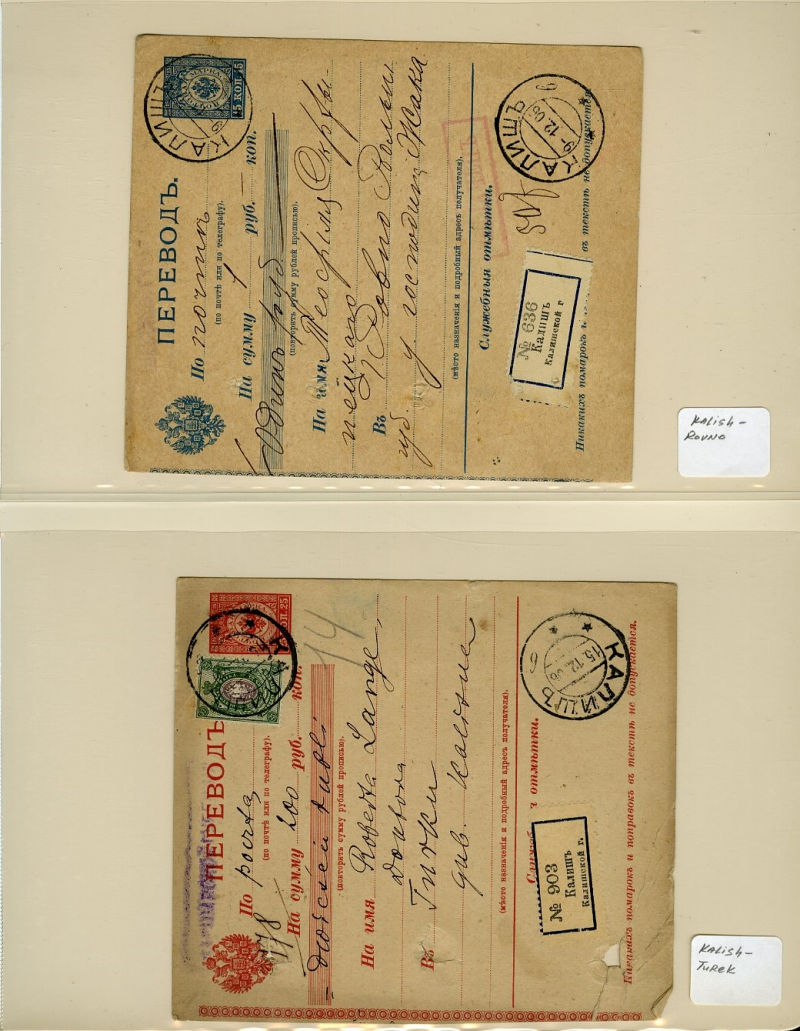 15 КОП. 15
МАРКА
КАЛИШЪ
ПЕРЕВОДЪ.
По почтѣ
(по почтѣ или по телеграфу).
На сумму 1 руб. — коп.
Одинъ руб
(повторить сумму рублей прописью).
На имя
Въ Ровно Волын.
губ. у господина Жака
(мѣсто назначенія и подробный адресъ получателя).
Служебныя отмѣтки.
КАЛИШЪ
9 12 06
№ 636
Калишъ
Калишской г
Никакихъ помарокъ
въ текстѣ не допускается.
KALISH-
ROVNO
КОП. 25
МАРКА
ПЕРЕВОДЪ
По pocrta
(по почтѣ или по телеграфу).
178
На сумму 200 руб. коп.
14
dwiescie rubli
(повторить сумму рублей прописью).
На имя Roberta Lange,
doktora
Въ Turku
gub. Kaliska
(мѣсто назначенія и подробный адресъ получателя).
отмѣтки.
КАЛИШЪ
15.12.06
№ 903
Калишъ
Калишской г.
Никакихъ помарокъ и поправокъ въ текстѣ не допускается.
KALISH-
TUREK